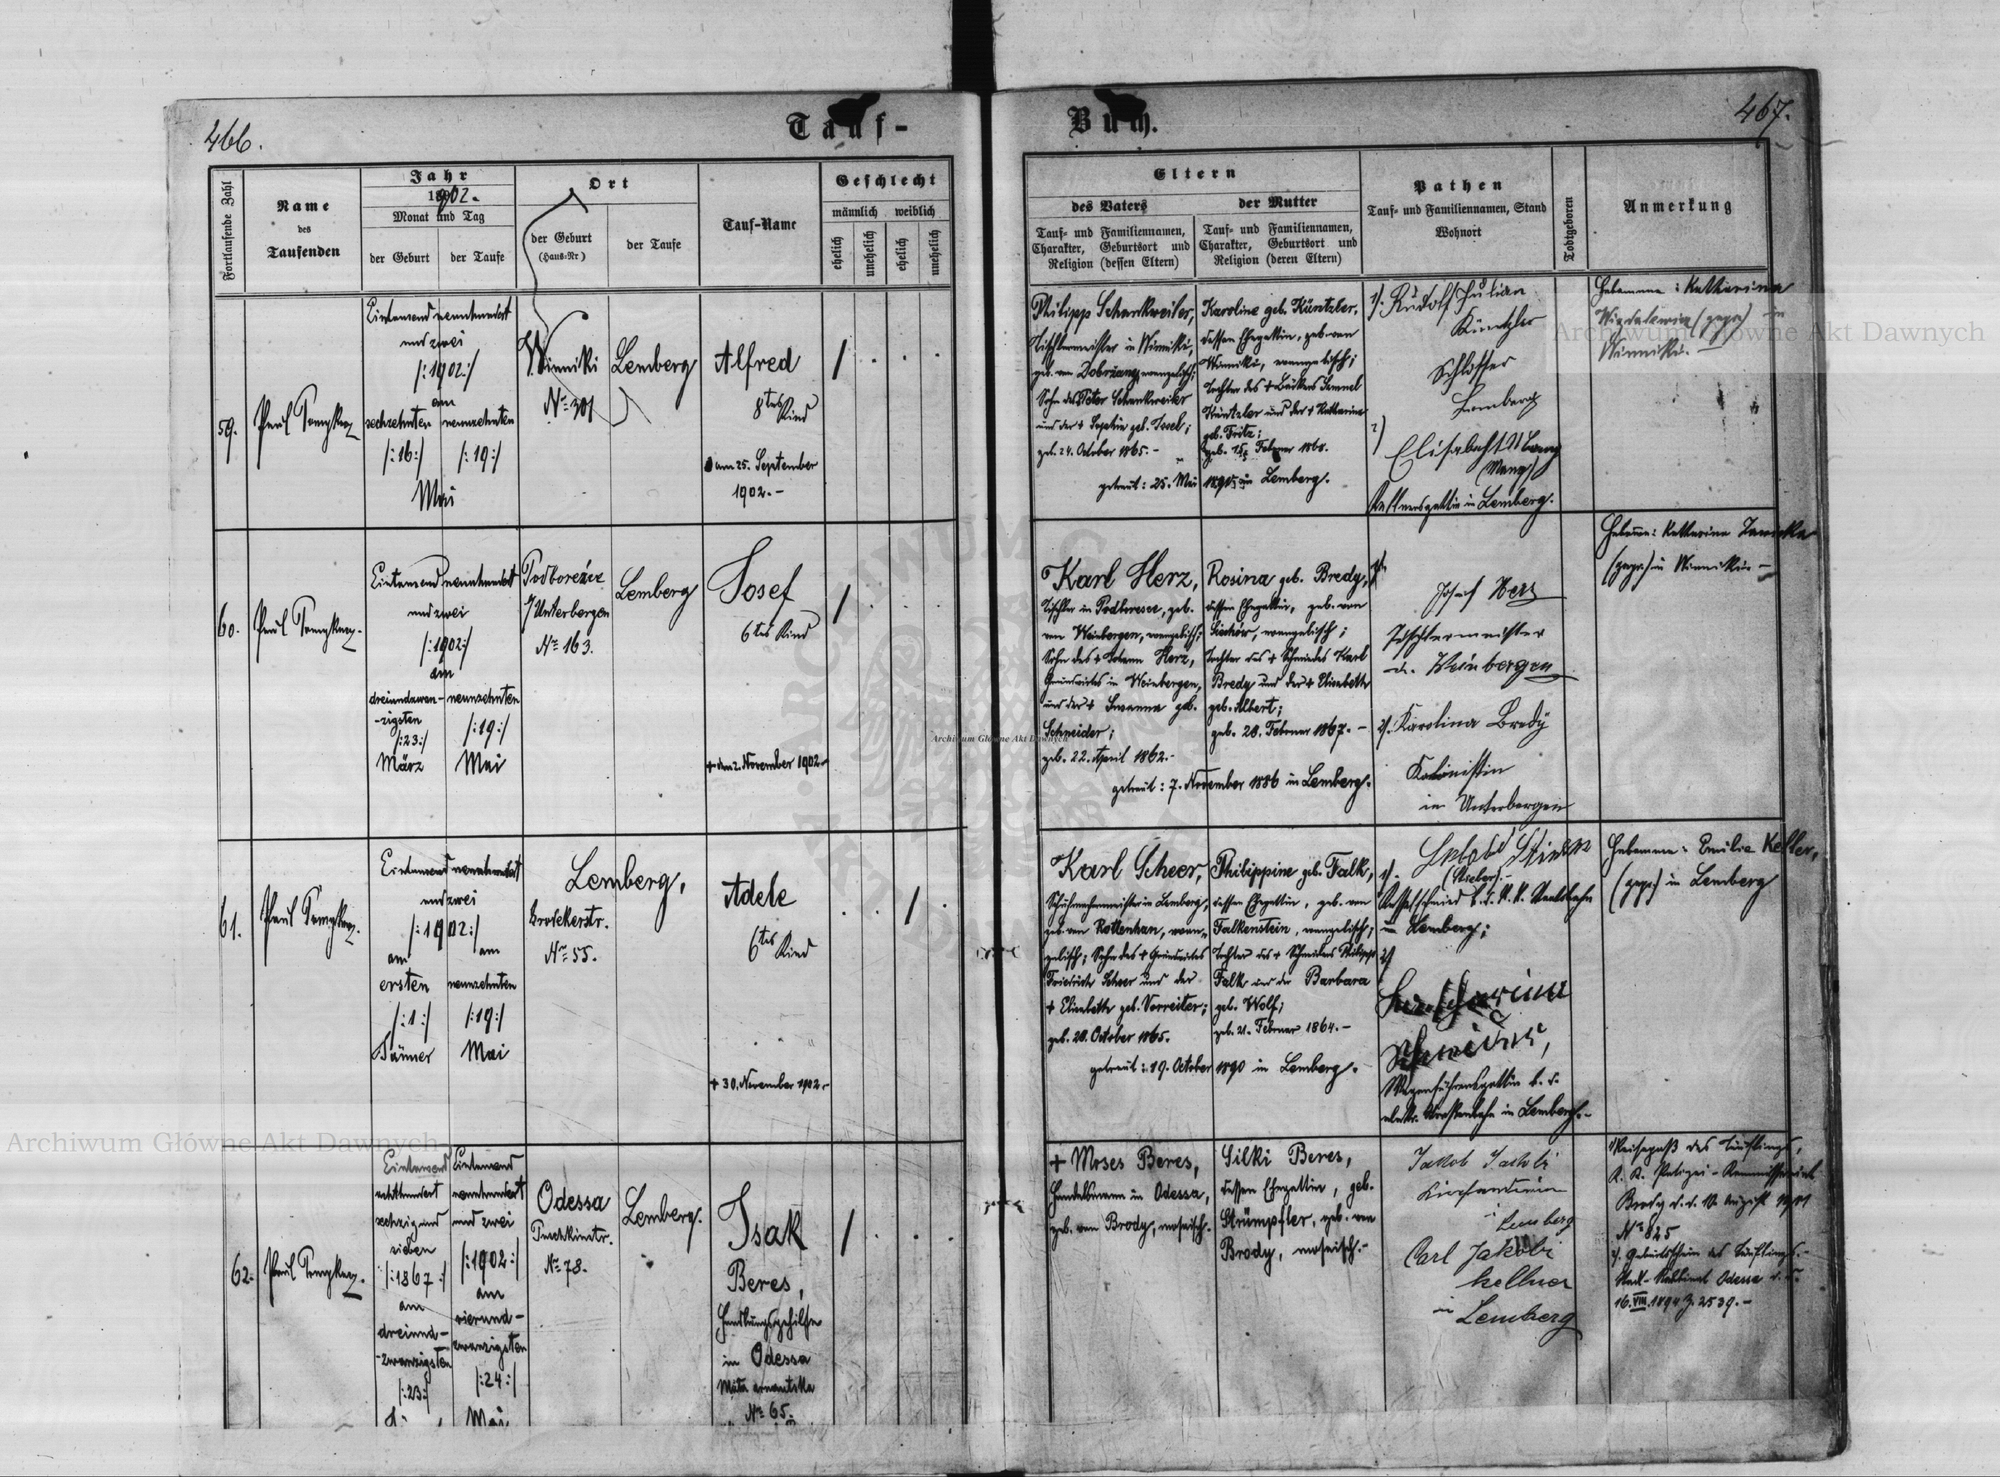 466.
Tauf-
Buch.
467.
Fortlaufende Zahl
Name
des
Taufenden
Jahr
1902.
Monat und Tag
der Geburt
der Taufe
Ort
der Geburt
(Haus-Nr)
der Taufe
Tauf-Name
Geschlecht
männlich
weiblich
ehelich
unehelich
ehelich
unehelich
Eltern
des Vaters
Tauf- und Familiennamen,
Charakter, Geburtsort und
Religion (dessen Eltern)
der Mutter
Tauf- und Familiennamen,
Charakter, Geburtsort und
Religion (deren Eltern)
Pathen
Tauf- und Familiennamen, Stand
Wohnort
Todtgeboren
Anmerkung
59.
Paul
Eintausend neunhundert
und zwei
/:1902:/
am
sechzehnten
/:16:/
neunzehnten
/:19:/
Mai
Winniki
Nr 301
Lemberg
Alfred
8tes Kind
am 25. September
1902.-
Philipp Schankweiler,
Tischlermeister in Winniki,
evangelisch;
Sohn des Peter Schankweiler
und der + Sophie geb.
geb. 24. October 1865.-
Karoline geb. Küntzler,
dessen Ehegattin, geb. von
Winniki, evangelisch;
Tochter des +
Küntzler und der + Katharina
geb. Fritz;
Februar 1868.
getraut: 25. Mai
in Lemberg.
1). Rudolf Julian
Küntzler
Schlosser
Lemberg
2)
Elisabeth
in Lemberg.
Hebamme: Katharina
(gepr.) in
Winniki.-
60.
Paul
Eintausend neunhundert
und zwei
/:1902:/
am
dreiundzwan-
-zigsten
/:23:/
März
neunzehnten
/:19:/
Mai
Podborezce
/Unterbergen
Nr 163.
Lemberg
Josef
6tes Kind
+ am 2. November 1902.
Karl Herz,
Tischler in Podboresce, geb.
von Weinbergen, evangelisch;
Sohn des + Johann Herz,
Grundwirtes in Weinbergen,
und der + Susanna geb.
Schneider;
geb. 22. April 1862.-
Rosina geb. Bredy,
dessen Ehegattin, geb. von
evangelisch;
Tochter des + Schmiedes Karl
Bredy und der + Elisabeth
geb. Albert;
geb. 28. Februar 1867.-
getraut: 7. November 1886 in Lemberg.
Josef Herz
Tischlermeister
Weinbergen
2). Karolina Bredy
Kolonistin
in Unterbergen
Hebamme: Katharina
(gepr.) in Winniki.-
61.
Paul
Eintausend neunhundert
und zwei
/:1902:/
am
ersten
/:1:/
Jänner
am
neunzehnten
/:19:/
Mai
Lemberg,
Grodekerstr.
Nr 55.
Adele
6tes Kind
+ 30. November 1902.-
Karl Scheer,
Schuhmachermeister in Lemberg,
geb. von Rottenhan, evan-
gelisch; Sohn des + Grundwirtes
Friedrich Scheer und der
+ Elisabeth geb. Vorreiter;
geb. 28. October 1865.
Philippine geb. Falk,
dessen Ehegattin, geb. von
Falkenstein, evangelisch;
Tochter des + Schmiedes Philipp
Falk und der Barbara
geb. Wolf;
geb. 21. Februar 1864.-
getraut: 19. October 1890 in Lemberg.
1).
Kesselschmied b. d. K. K. Staatsbahn
in Lemberg;
2)
Wagenführersgattin b. d.
elektr. Strassenbahn in Lemberg.-
Hebamme: Emilie Keller,
(gepr.) in Lemberg
62.
Paul
Eintausend
achthundert
sechzig und
sieben
/:1867:/
am
dreiund-
-zwanzigsten
/:23:/
Eintausend
neunhundert
und zwei
/:1902:/
am
vierund-
zwanzigsten
/:24:/
Mai
Odessa
Puschkinstr.
Nr 78.
Lemberg.
Isak
Beres,
Handlungsgehilfe
in Odessa
Nr 65.
+ Moses Beres,
Handelsmann in Odessa,
geb. von Brody, mosaisch.
Silki Beres,
dessen Ehegattin, geb.
Strümpfler, geb. von
Brody, mosaisch.-
Jakob Jakobi
Lemberg
Carl Jakobi
Kellner
in
Lemberg
Reisepaß des Täuflings,
K. K. Polizei-Kommissariat
Brody d. d. 10. August 1901
Nr 825
2). Geburtsschein des Täuflings.-
Stadt-Rabbinat Odessa
16. VIII. 1894 Z. 2539.-
Archiwum Główne Akt Dawnych
Archiwum Główne Akt Dawnych
Archiwum Główne Akt Dawnych